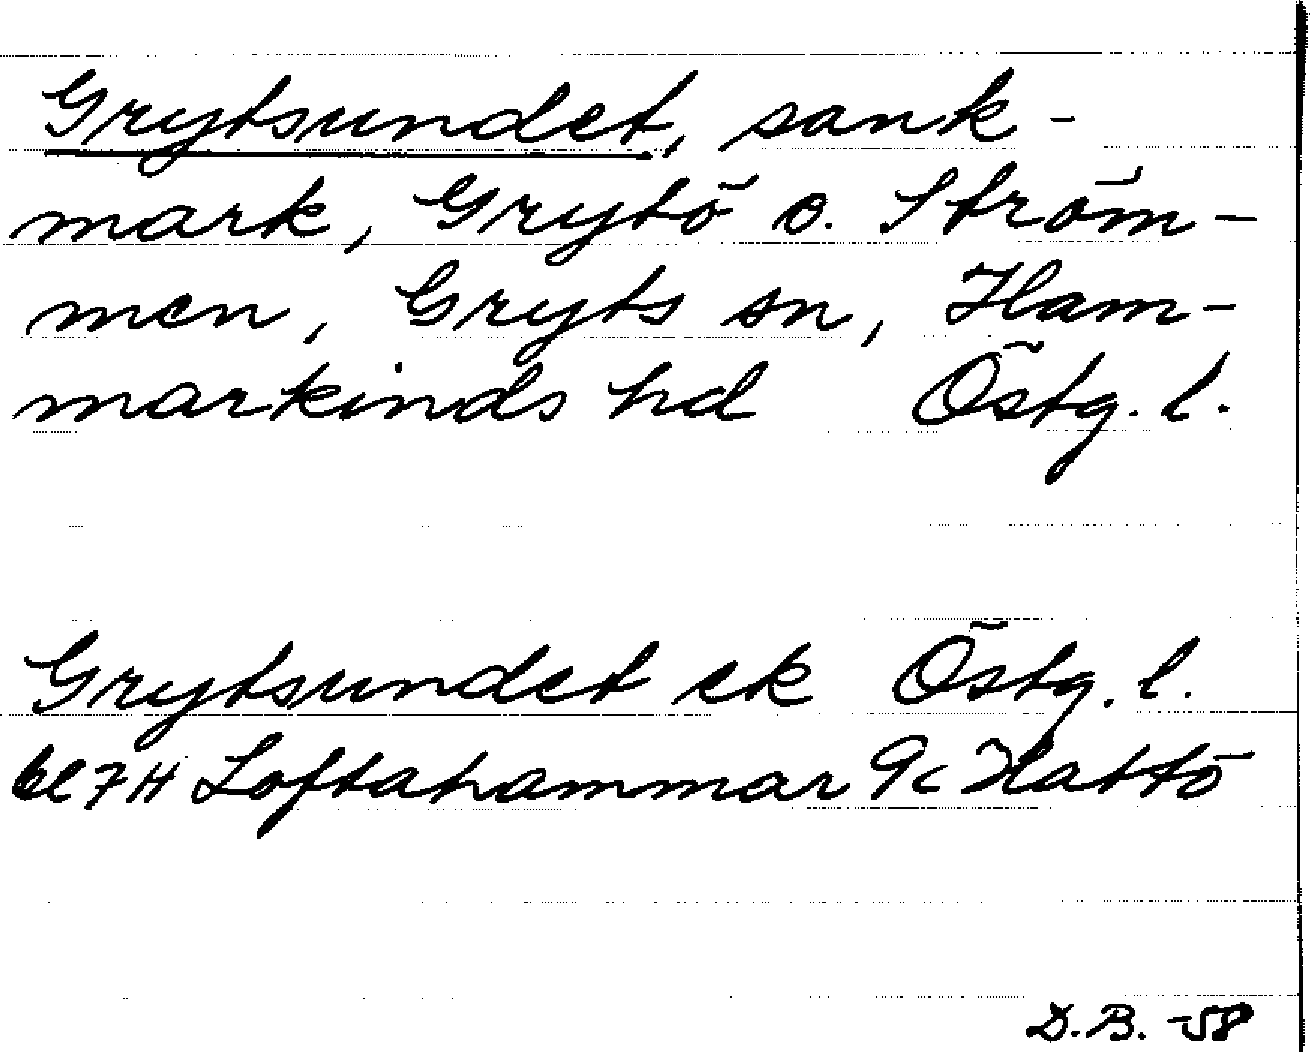 Grytsundet, sank-
mark, Grytö o. Ström-
men, Gryts sn, Ham-
markinds hd Östg. l.
Grytsundet ek Östg. l.
bl 7H Loftahammar 9c Hattö
D.B. -58